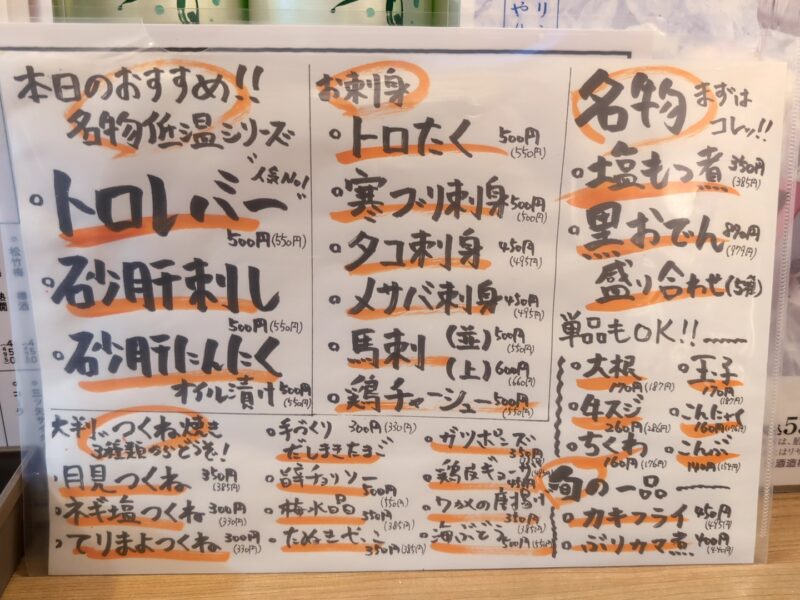 本日のおすすめ!!
名物低温シリーズ
人気No.1
トロレバー
500円(550円)
砂肝刺し
500円(550円)
砂肝にんにく
オイル漬け 500円(550円)
お刺身
トロたく 500円(550円)
寒ブリ刺身 500円(500円)
タコ刺身 450円(495円)
メサバ刺身 450円(495円)
馬刺 (並) 500円(550円)
(上) 600円(660円)
鶏チャーシュー 500円(550円)
名物 まずはコレッ!!
塩もつ煮 350円(385円)
黒おでん 890円(979円)
盛り合わせ(5種)
単品もOK!!
大根 170円(187円)
玉子 170円(187円)
牛スジ 260円(286円)
こんにゃく 160円(176円)
ちくわ 160円(176円)
こんぶ 140円(154円)
旬の一品
カキフライ 450円(495円)
ぶりカマ煮 400円(440円)
大判つくね焼き
3種類つぶどうを!
月見つくね 350円(385円)
ネギ塩つくね 300円(330円)
てりまよつくね 300円(330円)
手づくり 300円(330円)
だしまきたまご
旨辛チョリソー 500円(550円)
梅水晶 350円(385円)
たぬきやっこ 350円(385円)
ガツポンズ
鶏皮ギョーザ
ワカメの唐揚げ 350円(385円)
海ぶどう 500円(550円)
松竹梅 樽酒